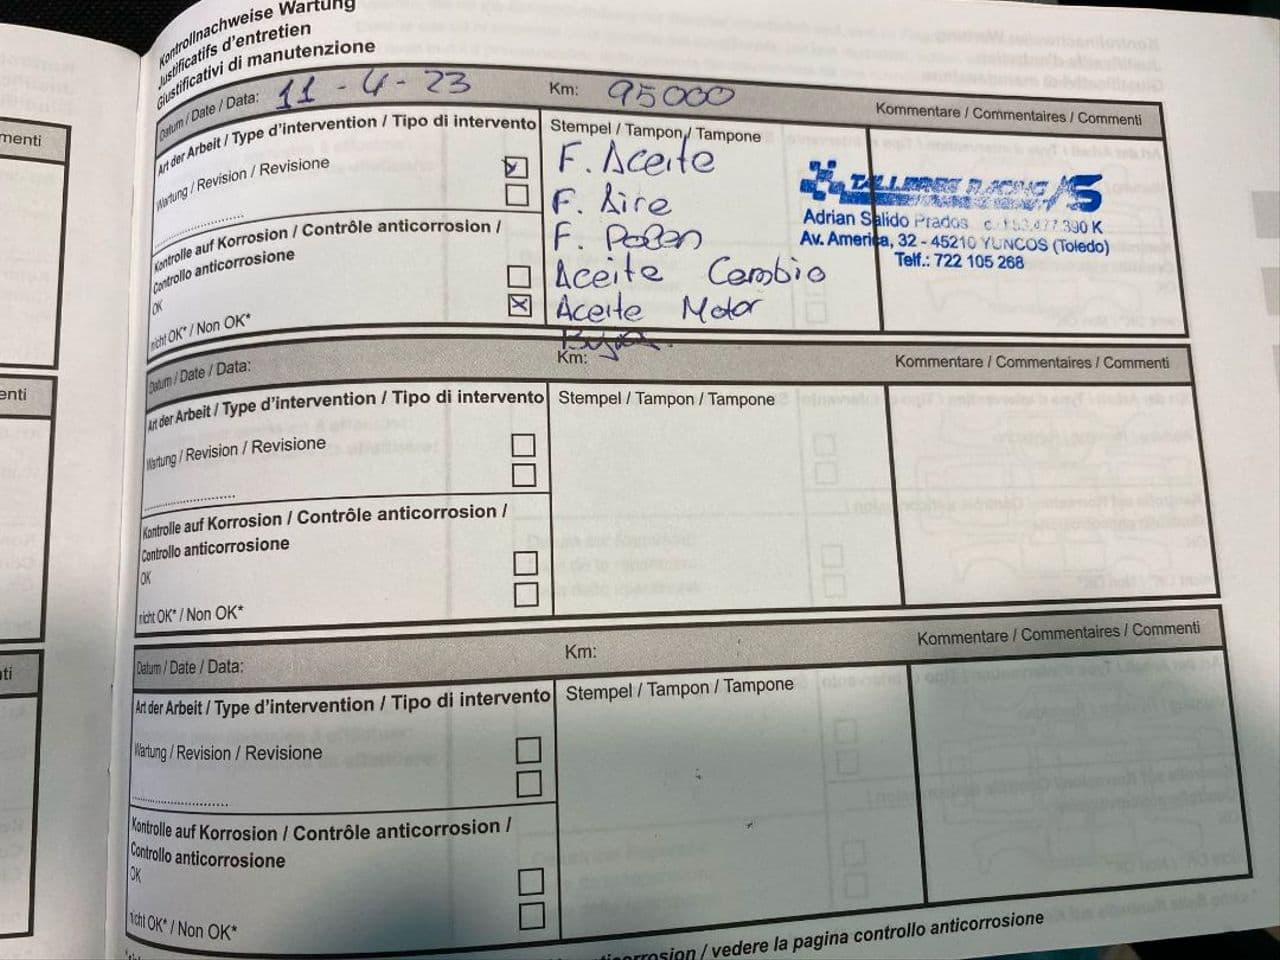 Kontrollnachweise Wartung
Justificatifs d'entretien
Giustificativi di manutenzione
Datum / Date / Data: 11 - 4 - 23 Km: 95000 Kommentare / Commentaires / Commenti
Art der Arbeit / Type d'intervention / Tipo di intervento
Wartung / Revision / Revisione
Kontrolle auf Korrosion / Contrôle anticorrosion /
Controllo anticorrosione
OK
nicht OK* / Non OK*
Stempel / Tampon / Tampone
F. Aceite
F. Aire
F. Polen
Aceite Cambio
Aceite Motor
TALLERES RACING AS
Adrian Salido Prados
Av. America, 32 - 45210 YUNCOS (Toledo)
Telf.: 722 105 268
Datum / Date / Data: Km: Kommentare / Commentaires / Commenti
Art der Arbeit / Type d'intervention / Tipo di intervento
Wartung / Revision / Revisione
Kontrolle auf Korrosion / Contrôle anticorrosion /
Controllo anticorrosione
OK
nicht OK* / Non OK*
Stempel / Tampon / Tampone
Datum / Date / Data: Km: Kommentare / Commentaires / Commenti
Art der Arbeit / Type d'intervention / Tipo di intervento
Wartung / Revision / Revisione
Kontrolle auf Korrosion / Contrôle anticorrosion /
Controllo anticorrosione
OK
nicht OK* / Non OK*
Stempel / Tampon / Tampone
/ vedere la pagina controllo anticorrosione